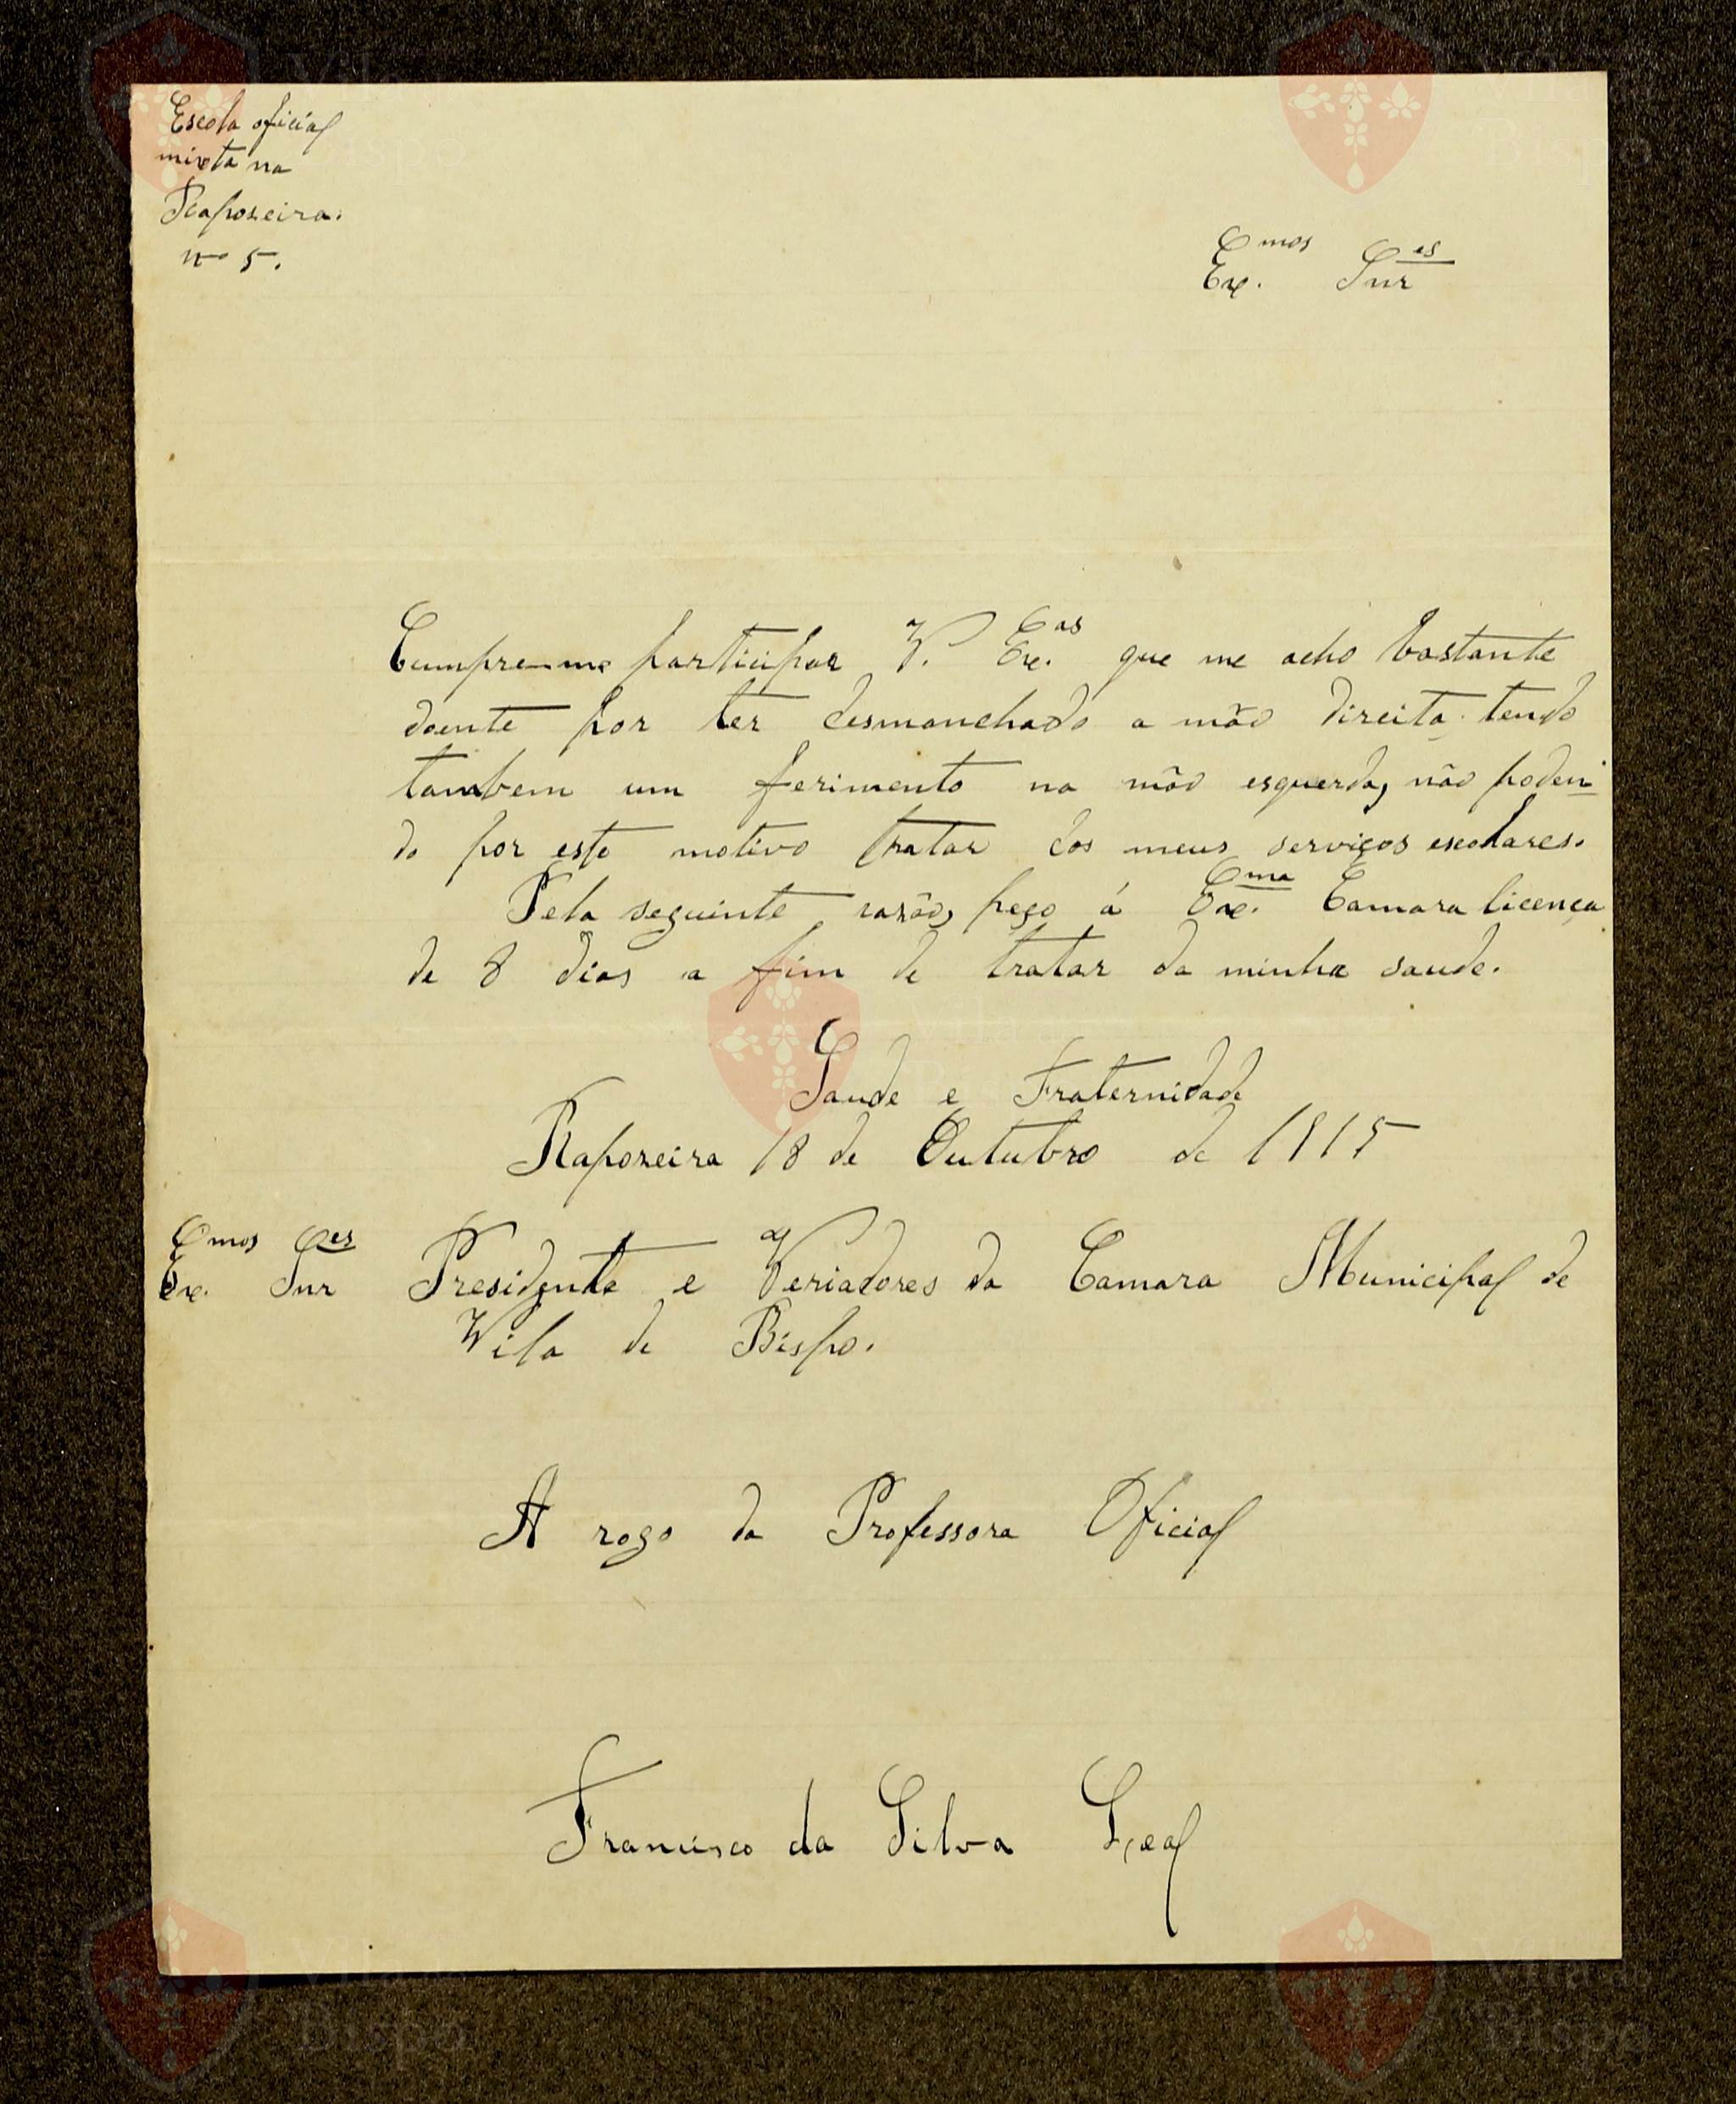 Escola oficial
mixta na
Raposeira.
nº 5.
Ex.mos Snr.es
Cumpre-me participar V. Ex.as que me acho bastante
doente por ter desmanchado a mão direita tendo
tambem um ferimento na mão esquerda, não poden-
do por este motivo tratar dos meus serviços escolares.
Pela seguinte razão, peço á Ex.ma Camara licença
de 8 dias a fim de tratar da minha saude.
Saude e Fraternidade
Raposeira 18 de Outubro de 1915
Ex.mos Snr.es Presidente e Veriadores da Camara Municipal de
Vila de Bispo.
A rogo da Professora Oficial
Francisco da Silva Leal
Vila do
Bispo